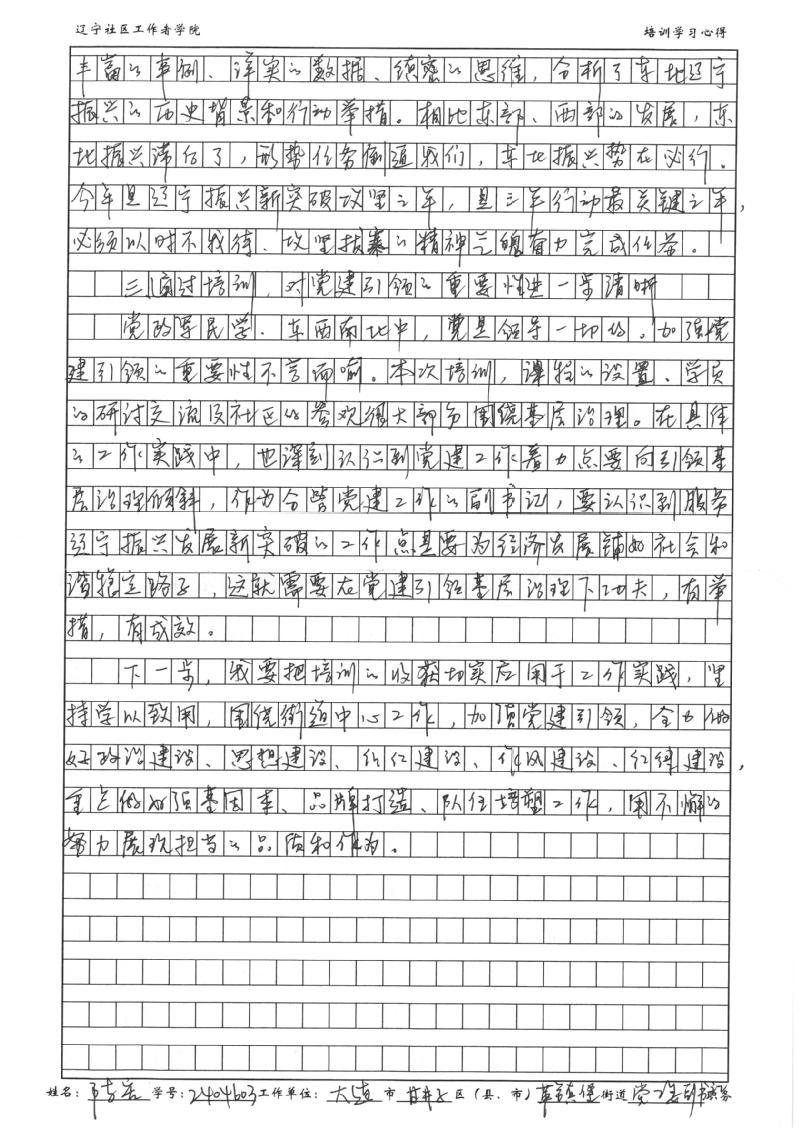 辽宁社区工作者学院 培训学习心得
丰富的事例、详实的数据、缜密的思维，分析了东北辽宁
振兴的历史背景和行动举措。相比东部、西部的发展，东
北振兴滞后了，形势任务倒逼我们，东北振兴势在必行。
今年是辽宁振兴新突破攻坚之年，是三年行动最关键之年，
必须以时不我待、攻坚拔寨的精神气魄奋力完成任务。
三、通过培训，对党建引领的重要性进一步清晰
党政军民学、东西南北中，党是领导一切的。加强党
建引领的重要性不言而喻。本次培训，课程的设置、学员
的研讨交流及社区的参观很大部分围绕基层治理。在具体
的工作实践中，也深刻认识到党建工作着力点要向引领基
层治理倾斜，作为分管党建工作的副书记，要认识到服务
辽宁振兴发展新突破的工作点是要为经济发展铺好社会和
谐稳定路子，这就需要在党建引领基层治理下功夫，有举
措，有成效。
下一步，我要把培训的收获切实应用于工作实践，坚
持学以致用，围绕街道中心工作，加强党建引领，全力做
好政治建设、思想建设、组织建设、作风建设、纪律建设，
重点做好强基固本、品牌打造、队伍培塑工作，用不懈的
努力展现担当的品质和作为。
姓名： 学号：2404603 工作单位：大连市甘井子区（县、市）革镇堡街道党工委副书记职务